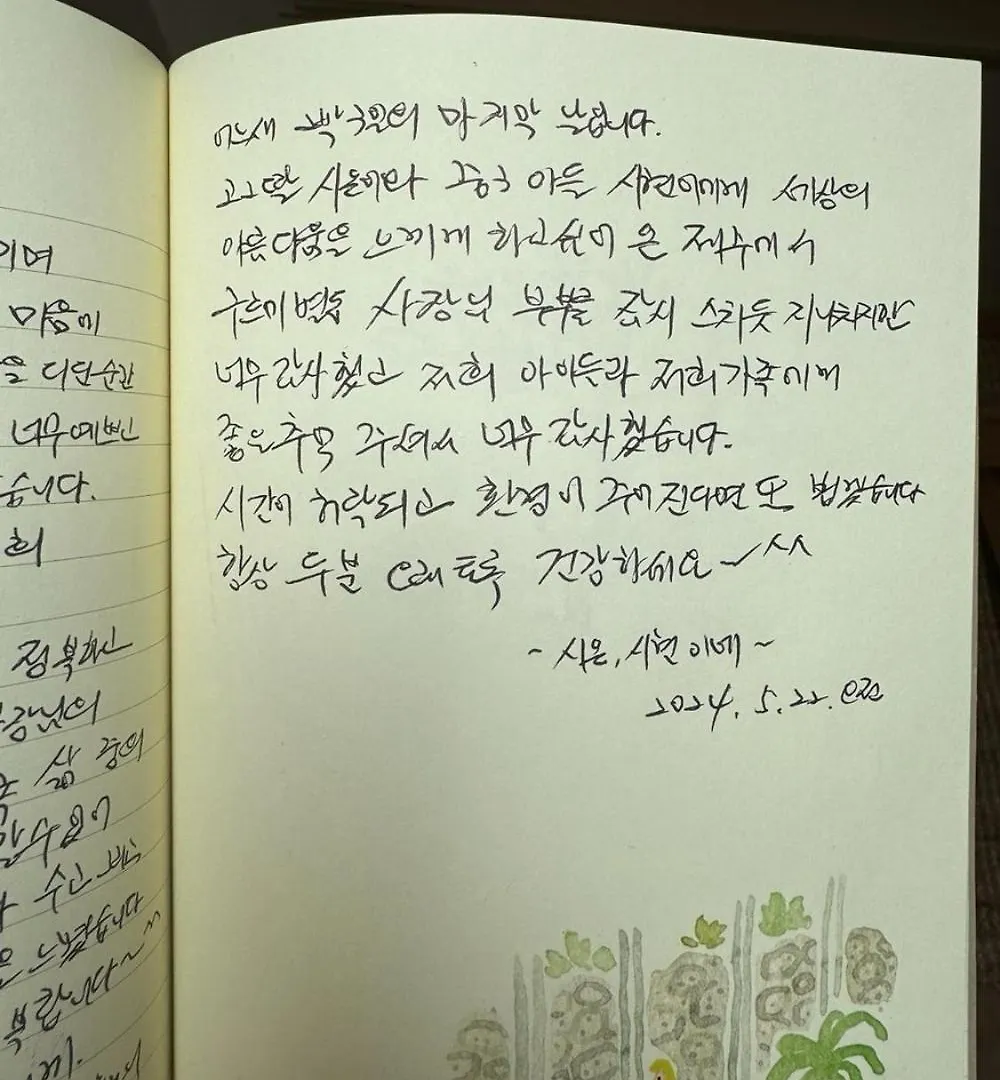 이며
마음이
디딘순간
너무예쁘신
습니다.
희
정북하신
삶 중의
수고
느꼈습니다
어느새 3박 4일의 마지막 날입니다.
고2딸 시온이와 중3 아들 시현이에게 세상의
아름다움을 느끼게 하고싶어 온 제주에서
구르미별통 사장님 부부를 잠시 스치듯 지나치지만
너무 감사했고 저희 아이들과 저희가족에게
좋은추억 주셔서 너무 감사했습니다.
시간이 허락되고 환경이 주어진다면 또 뵙겠습니다
항상 두분 오래토록 건강하세요~ ^^
~ 시온, 시현이네 ~
2024. 5. 22. 오전